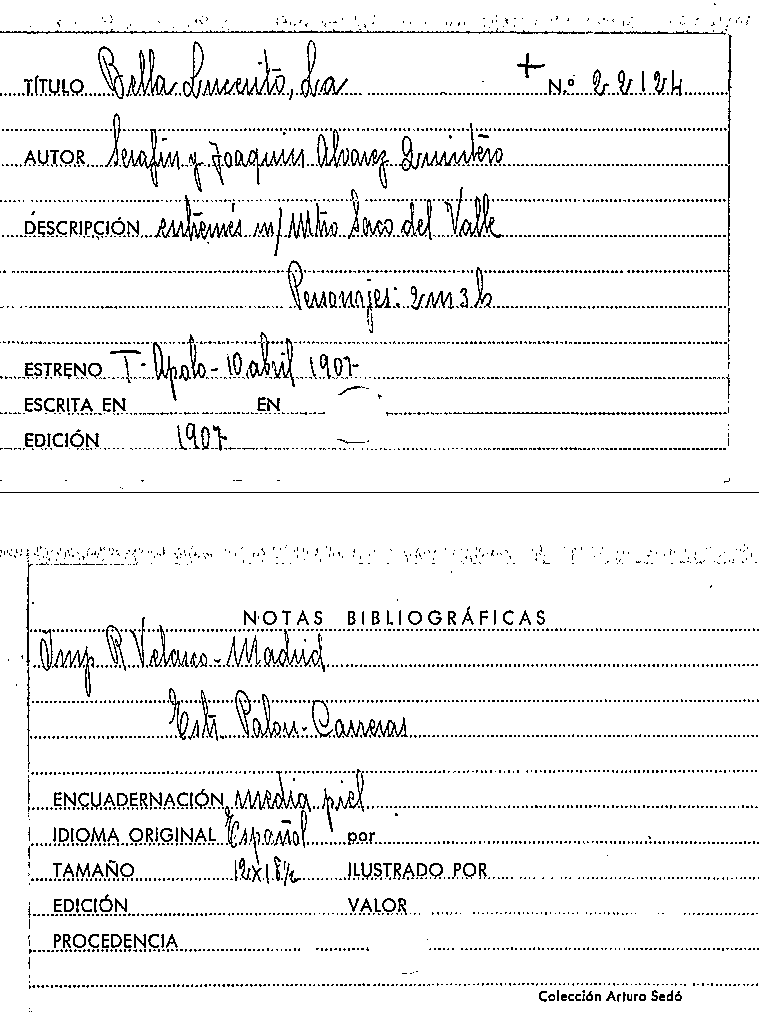 TÍTULO Bella Lucerito, La + N.º 22124
AUTOR Serafin y Joaquin Alvarez Quintero
DESCRIPCIÓN entremés m/ Mtro Saco del Valle
Personajes: 2m 3h
ESTRENO T. Apolo - 10 abril 1907
ESCRITA EN EN
EDICIÓN 1907
NOTAS BIBLIOGRÁFICAS
Imp R Velasco - Madrid
Estr. Palou - Carreras
ENCUADERNACIÓN media piel
IDIOMA ORIGINAL Español por
TAMAÑO 12x18½ ILUSTRADO POR
EDICIÓN VALOR
PROCEDENCIA
Colección Arturo Sedó